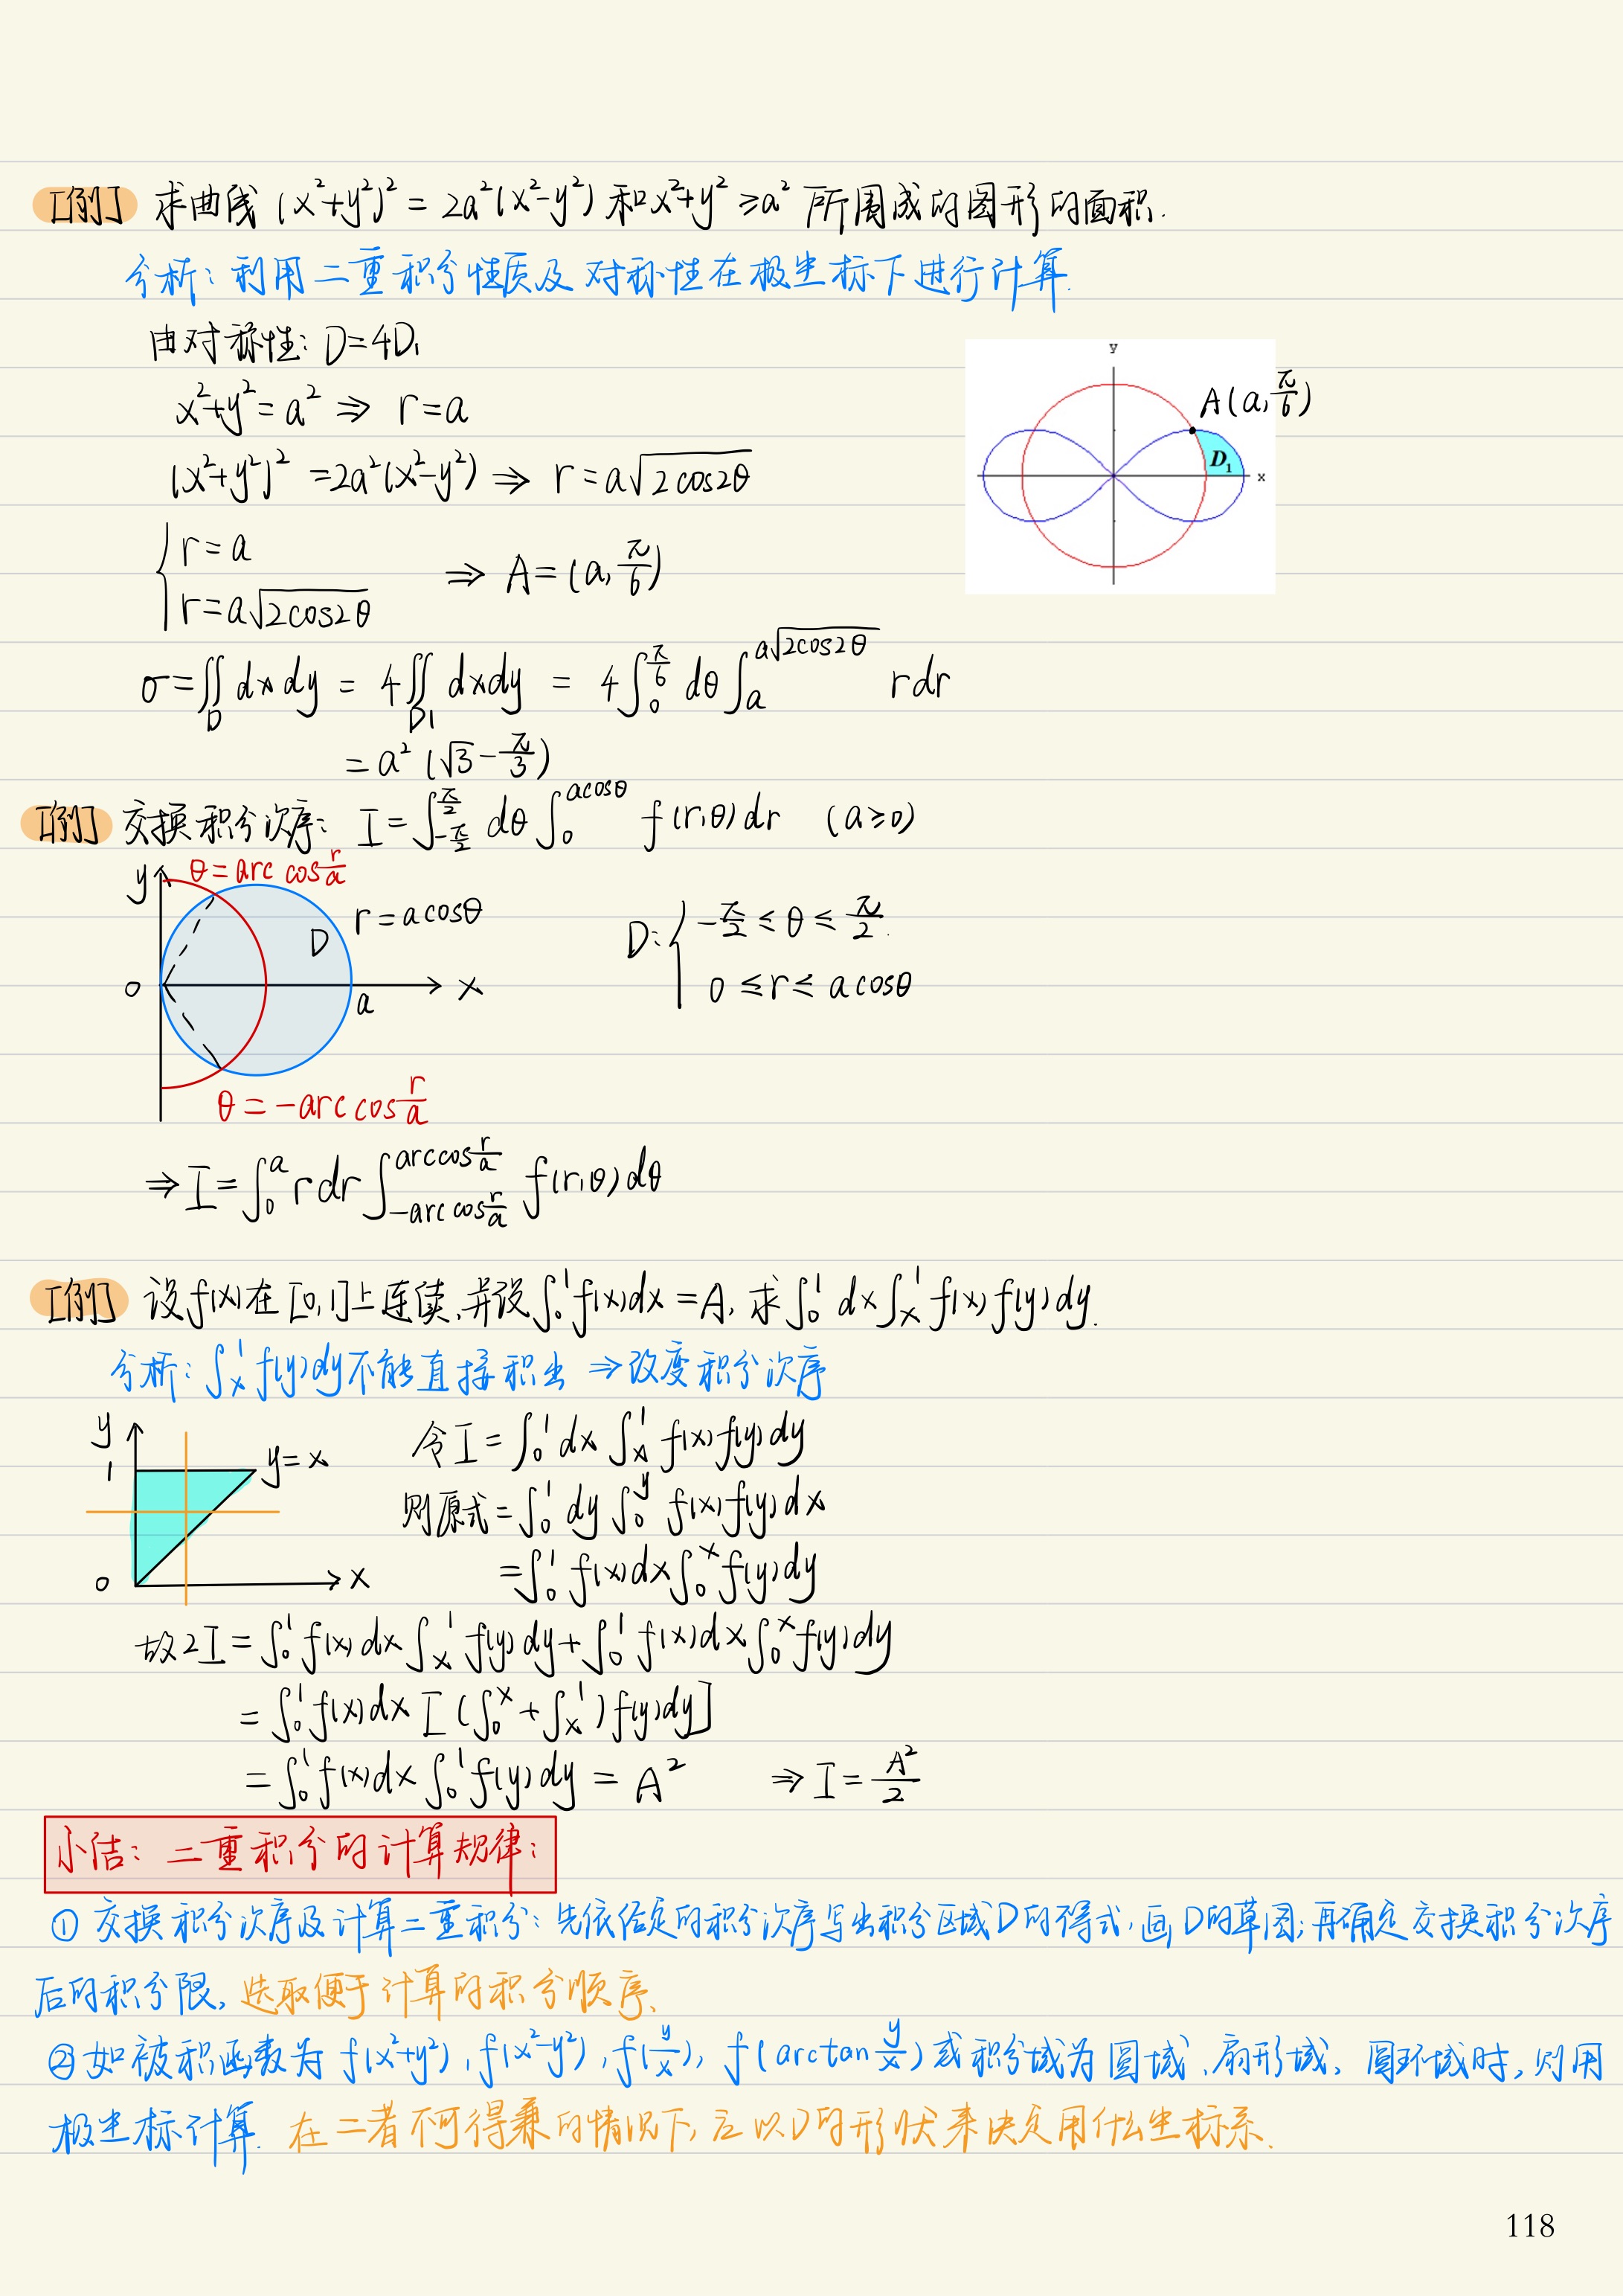 [例] 求曲线 (x²+y²)² = 2a²(x²-y²) 和 x²+y² ≥ a² 所围成的图形的面积.
分析: 利用二重积分性质及对称性在极坐标下进行计算.
由对称性: D=4D₁
x²+y²=a² ⇒ r=a
(x²+y²)²=2a²(x²-y²) ⇒ r=a√(2cos2θ)
{ r=a
r=a√(2cos2θ) ⇒ A=(a, π/6)
y
A(a, π/6)
D₁
x
σ=∬_D dxdy = 4∬_{D1} dxdy = 4∫_0^{π/6} dθ ∫_a^{a√(2cos2θ)} rdr
= a²(√3-π/3)
[例] 交换积分次序: I=∫_{-π/2}^{π/2} dθ ∫_0^{acosθ} f(r,θ)dr (a≥0)
y θ=arccos r/a
r=acosθ
D
0 a x
θ=-arccos r/a
D: { -π/2 ≤ θ ≤ π/2.
0 ≤ r ≤ acosθ
⇒ I=∫_0^a rdr ∫_{-arccos r/a}^{arccos r/a} f(r,θ)dθ
[例] 设f(x)在[0,1]上连续,并设∫_0^1 f(x)dx=A, 求∫_0^1 dx∫_x^1 f(x)f(y)dy.
分析: ∫_x^1 f(y)dy不能直接积出 ⇒ 改变积分次序
y
1
y=x
0 x
令I=∫_0^1 dx ∫_x^1 f(x)f(y)dy
则原式=∫_0^1 dy ∫_0^y f(x)f(y)dx
=∫_0^1 f(x)dx∫_0^x f(y)dy
故2I=∫_0^1 f(x)dx∫_x^1 f(y)dy+∫_0^1 f(x)dx∫_0^x f(y)dy
=∫_0^1 f(x)dx[(∫_0^x+∫_x^1)f(y)dy]
=∫_0^1 f(x)dx∫_0^1 f(y)dy=A² ⇒ I=A²/2
小结: 二重积分的计算规律:
① 交换积分次序及计算二重积分: 先依给定的积分次序写出积分区域D的不等式,画D的草图;再确定交换积分次序
后的积分限, 选取便于计算的积分顺序.
②如被积函数为 f(x²+y²), f(x²-y²), f(y/x), f(arctan y/x) 或积分域为圆域、扇形域、圆环域时,则用
极坐标计算. 在二者不可得兼的情况下,应以D的形状来决定用什么坐标系.
118